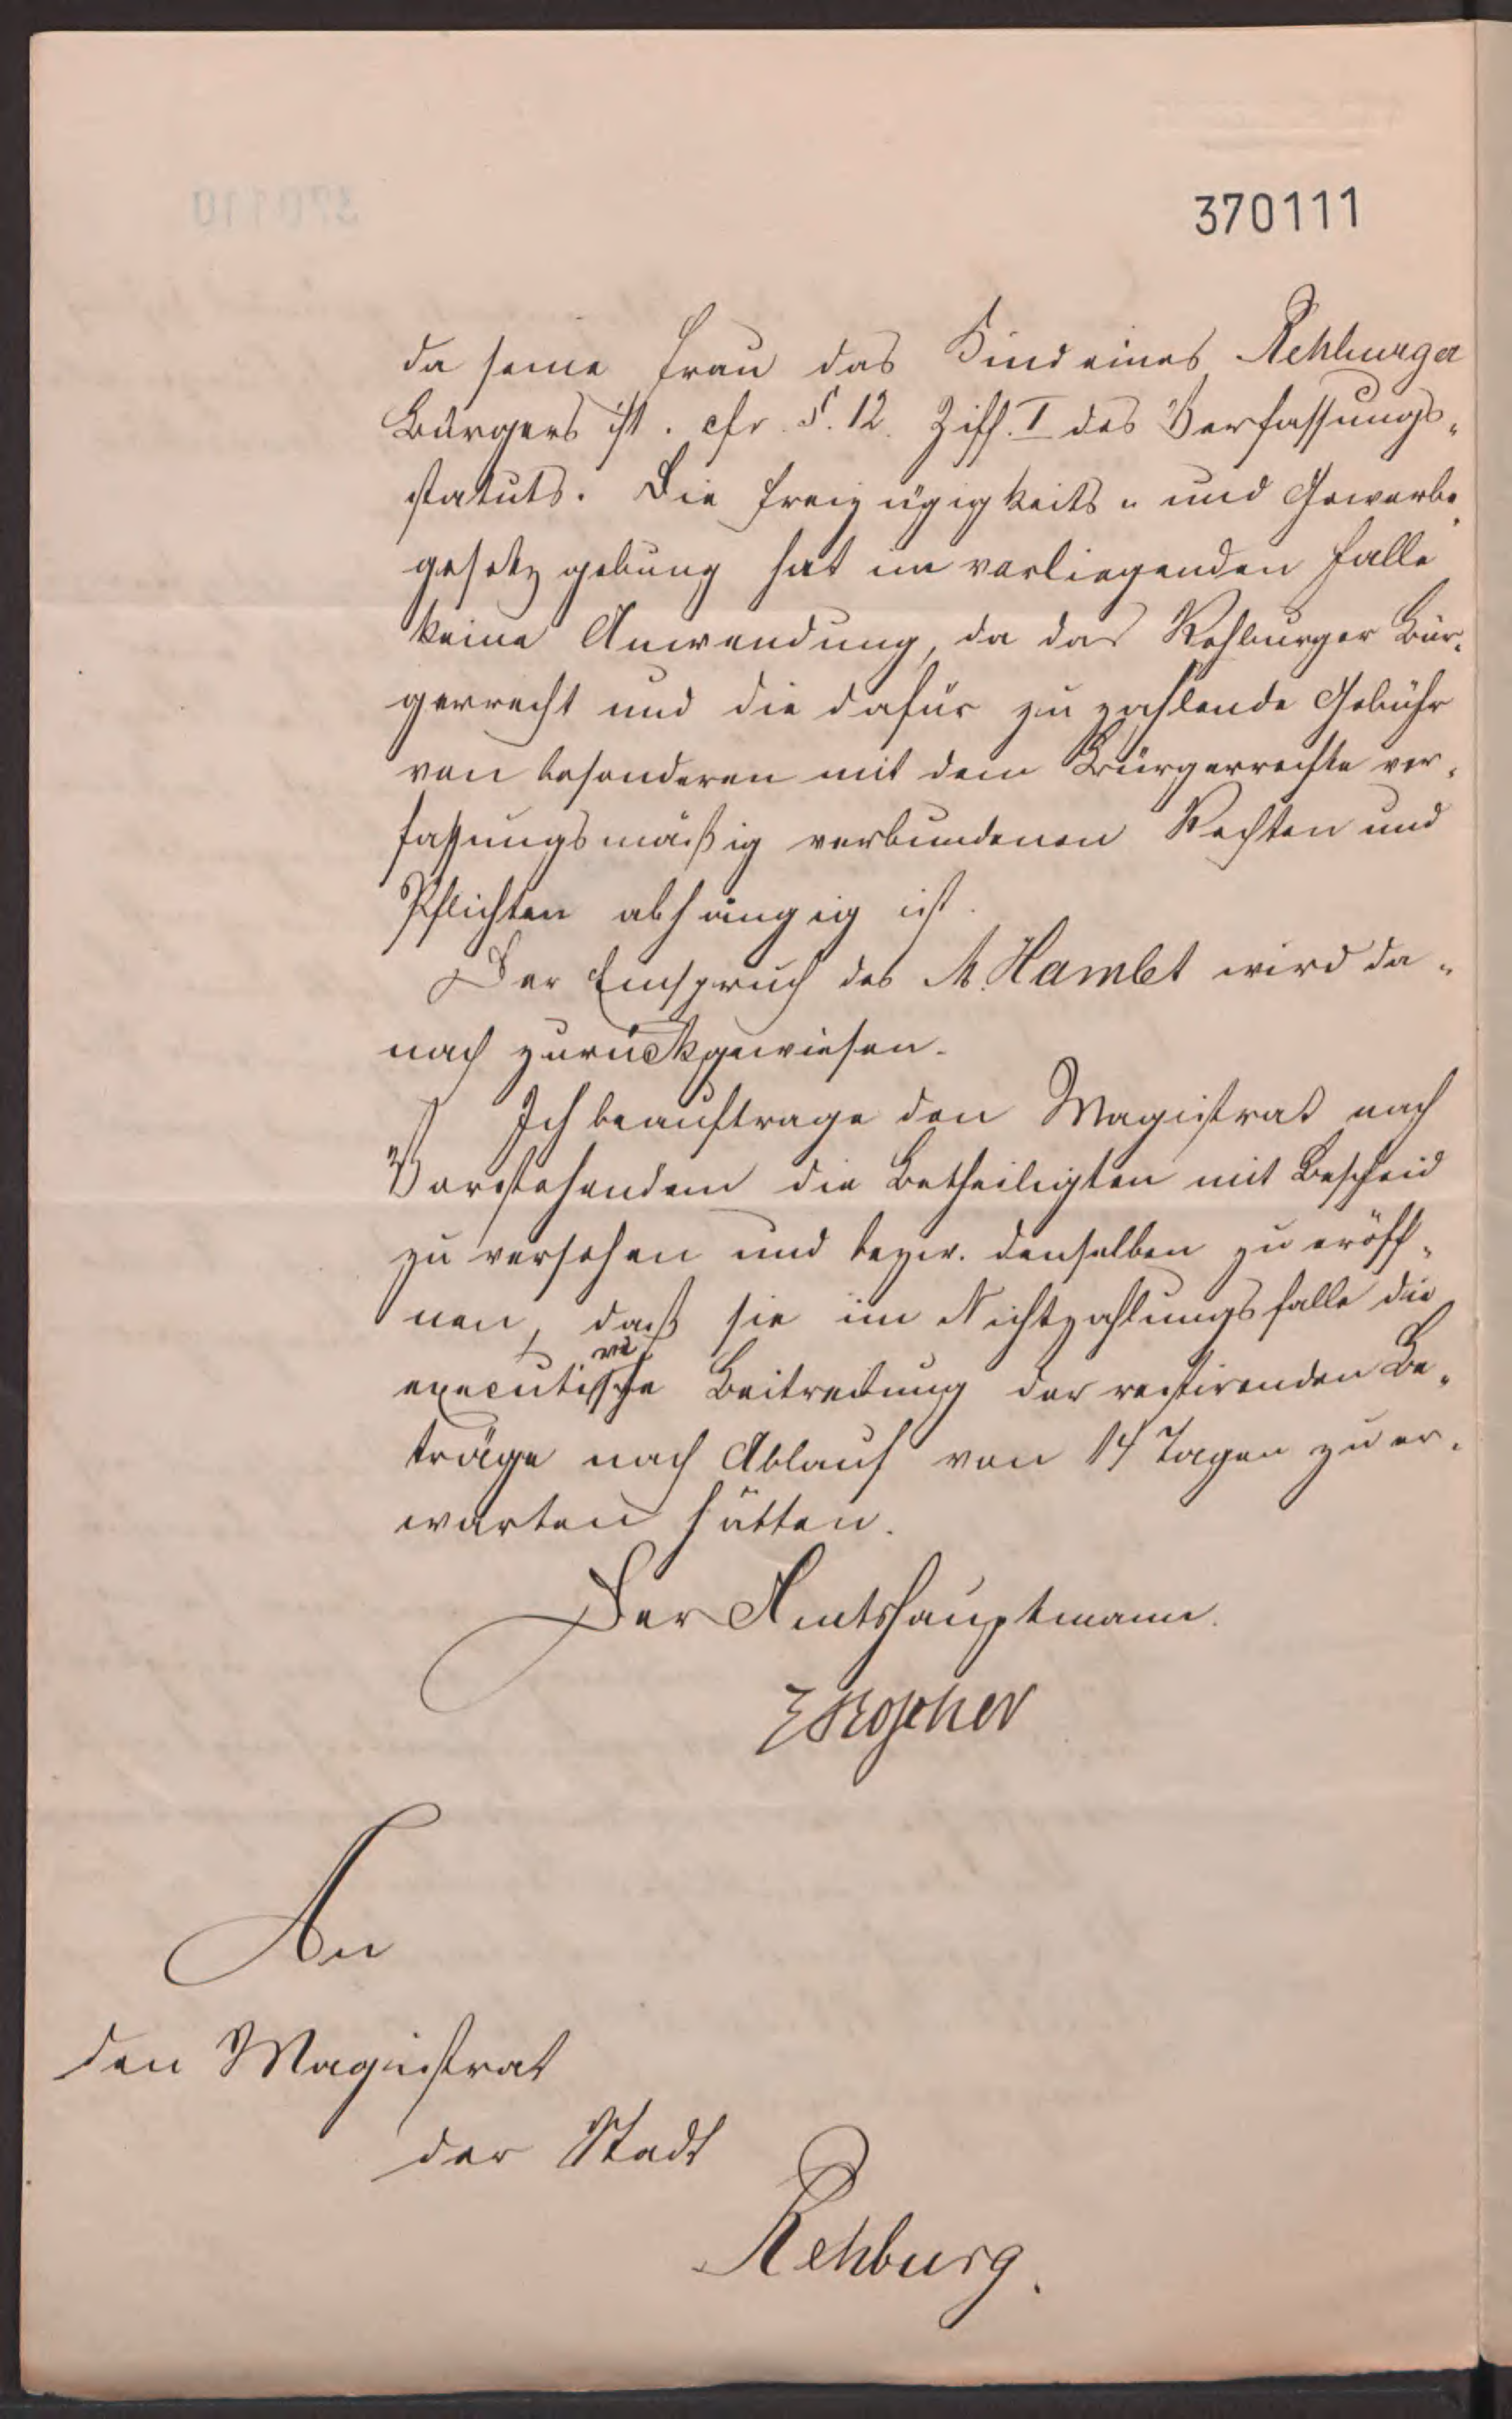 370111
da seine Frau das Kind eines Rehburger
Bürgers ist. cfr. §. 12. Ziff. I des Verfassungs-
statuts. Die Freizügigkeits- und Gewerbe-
gesetzgebung hat im vorliegenden Falle
keine Anwendung, da das Rehburger Bür-
gerrecht und die dafür zu zahlende Gebühr
von besonderen mit dem Bürgerrechte ver-
fassungsmäßig verbundenen Rechten und
Pflichten abhängig ist.
Der Einspruch des M. Hamlet wird da-
nach zurückgewiesen.
Ich beauftrage den Magistrat nach
Vorstehendem die Betheiligten mit Bescheid
zu versehen und bezw. denselben zu eröff-
nen, daß sie im Nichtzahlungsfalle die
executive Beitreibung der restirenden Be-
träge nach Ablauf von 14 Tagen zu er-
warten hätten.
Der Amtshauptmann.
Roscher
An
den Magistrat
der Stadt
Rehburg.